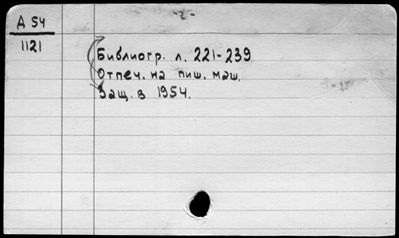 -2-
Д 54
1121
Библиогр. л. 221-239
Отпеч. на пиш. маш.
Защ. в 1954.